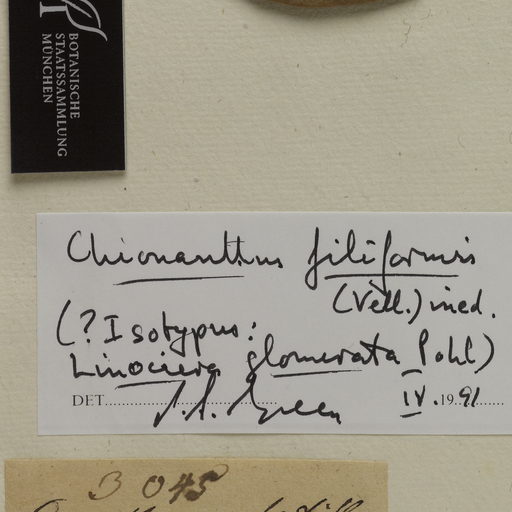 BOTANISCHE
STAATSSAMMLUNG
MÜNCHEN
Chionanthus filiformis
(Vell.) ined.
(? Isotypus:
Linociera glomerata Pohl)
DET. P.S. Green IV.1991
3045